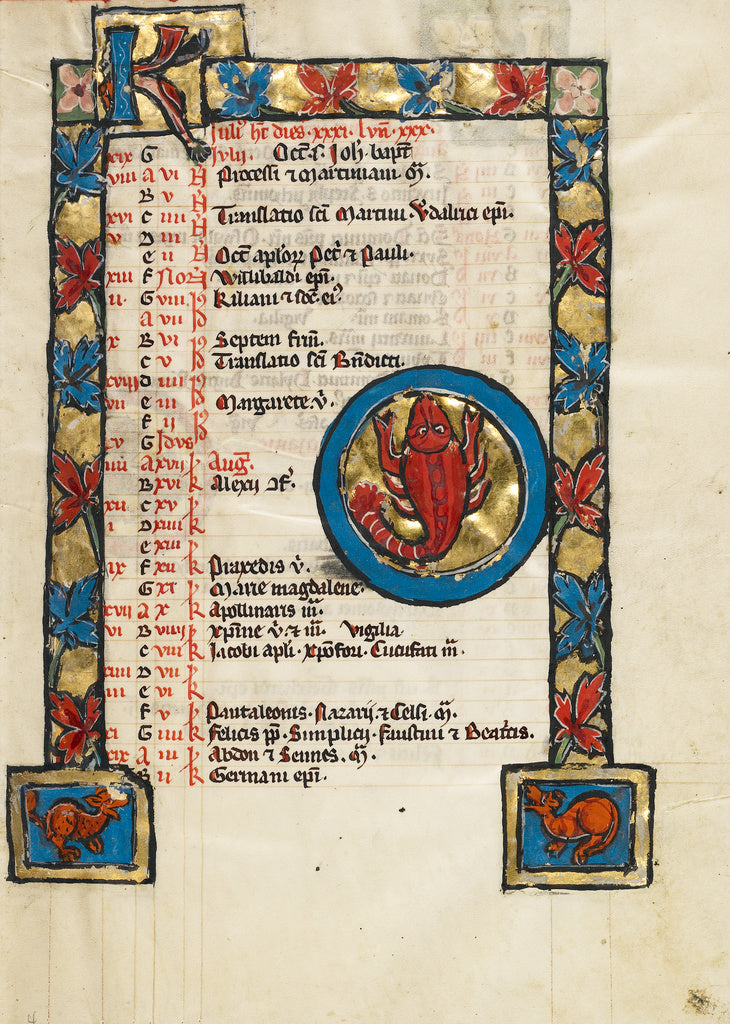 K
Iuli⁹ ht dies .xxxi. lun̄. xxx.
xix G Iulij. Oct̄. s. Ioh̄. bapt̄
viii A vi N Processi ⁊ martiniani m̄.
B v N
xvi C iiii N Translatio sc̄i Martini. Vdalrici ep̄i.
v D iii N
E ii N Oct̄ ap̄loꝝ Pet̄ ⁊ Pauli.
xiii F Non Willibaldi ep̄i.
ii. G viii Id Kiliani ⁊ soc̄. ei⁹.
A vii Id
x B vi Id Septem fr̄m.
C v Id Translatio sc̄i Bn̄dicti.
xviii D iiii Id
vii E iii Id Margarete v̄.
F ii Id
xv G Idus
iiii A xvii k Auḡ.
B xvi k Alexij ꝯf̄.
xii C xv k
i D xiiii k
E xiii k
ix F xii k Praxedis v̄.
G xi k Marie magdalene.
xvii A x k Apollinaris m̄.
vi B viiij k Xp̄ine v̄. ⁊ m̄. Vigilia
C viii k Iacobi apli. Xp̄ofori. Cucufati m̄.
xiiii D vii k
iii E vi k
F v k Pantaleonis. Nazarij ⁊ Celsi. m̄.
xi G iiii k Felicis pp̄. Simplicij. Faustini ⁊ Beat͛cis.
xix A iii k Abdon ⁊ Sennes. m̄.
B ii k Germani ep̄i.